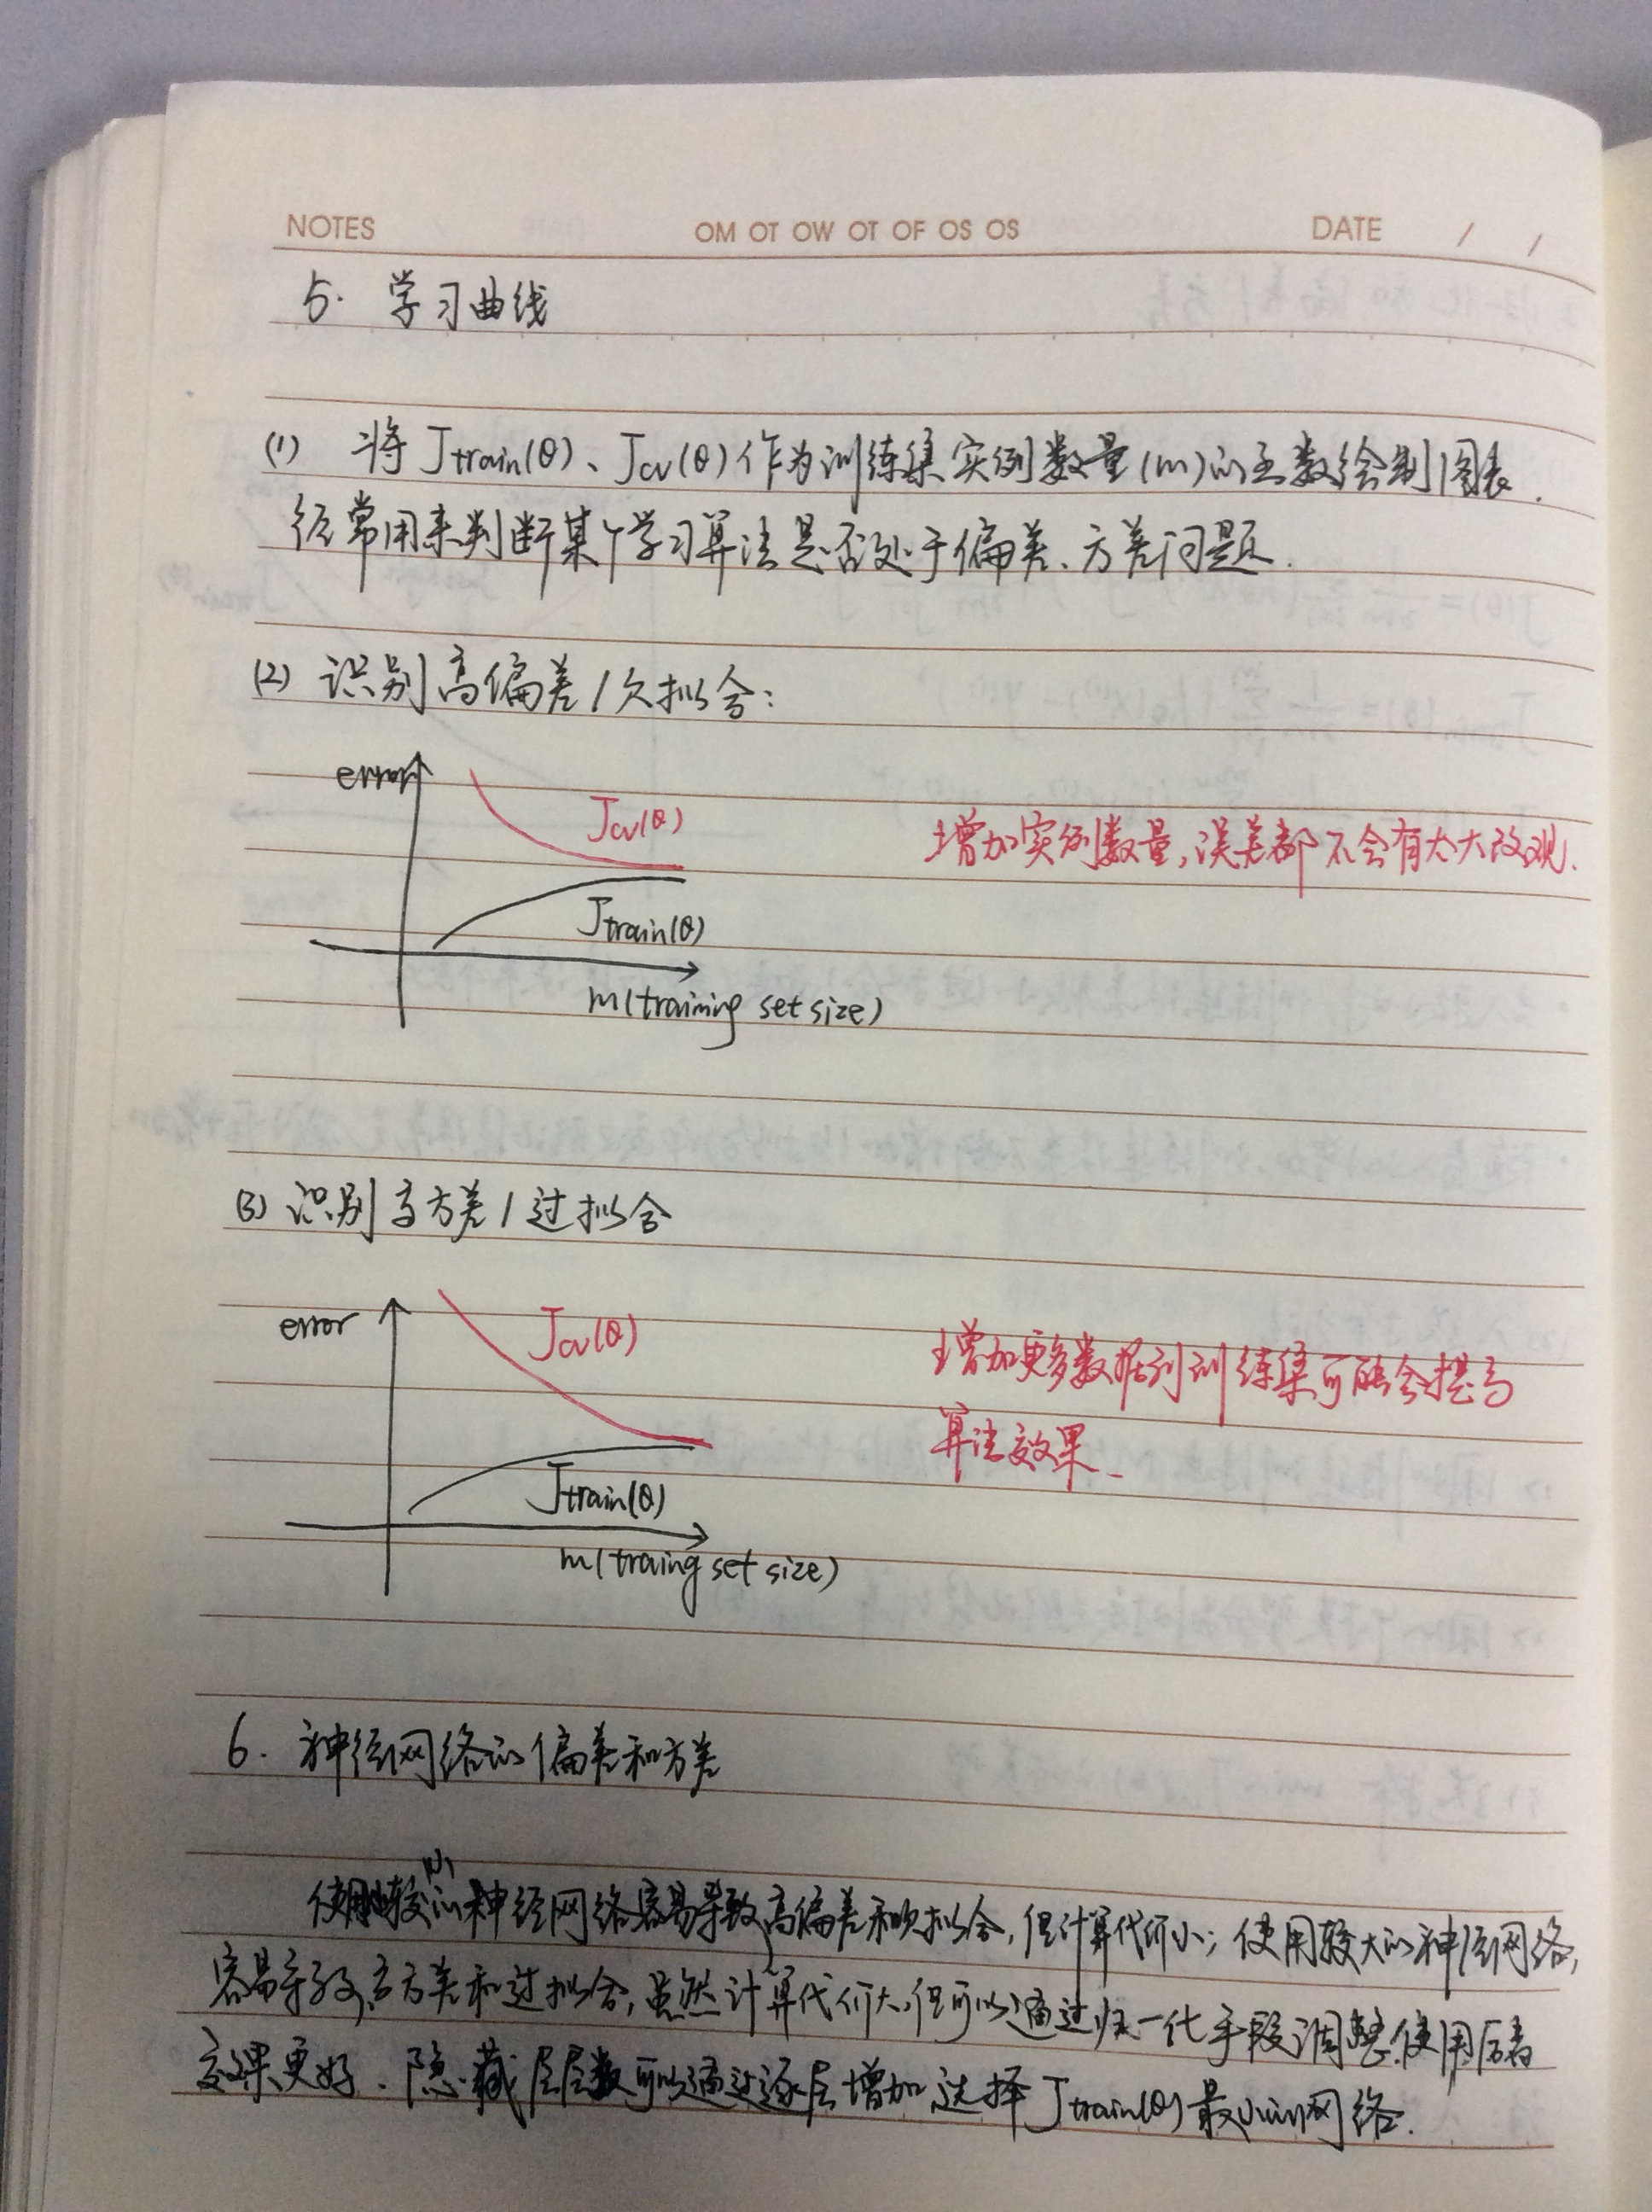 NOTES OM OT OW OT OF OS OS DATE / /
5. 学习曲线
(1) 将Jtrain(θ)、Jcv(θ)作为训练集实例数量(m)的函数绘制图表.
经常用来判断某个学习算法是否处于偏差、方差问题.
(2) 识别高偏差/欠拟合:
error
Jcv(θ)
增加实例数量,误差都不会有太大改观.
Jtrain(θ)
m(training set size)
(3) 识别高方差/过拟合
error
Jcv(θ)
增加更多数据到训练集可能会提高
算法效果.
Jtrain(θ)
m(traing set size)
6. 神经网络的偏差和方差
使用较小的神经网络容易导致高偏差和欠拟合,但计算代价小;使用较大的神经网络,
容易导致高方差和过拟合,虽然计算代价大,但可以通过归一化手段调整.使用后者
效果更好.隐藏层层数可以通过逐层增加选择Jtrain(θ)最小的网络.